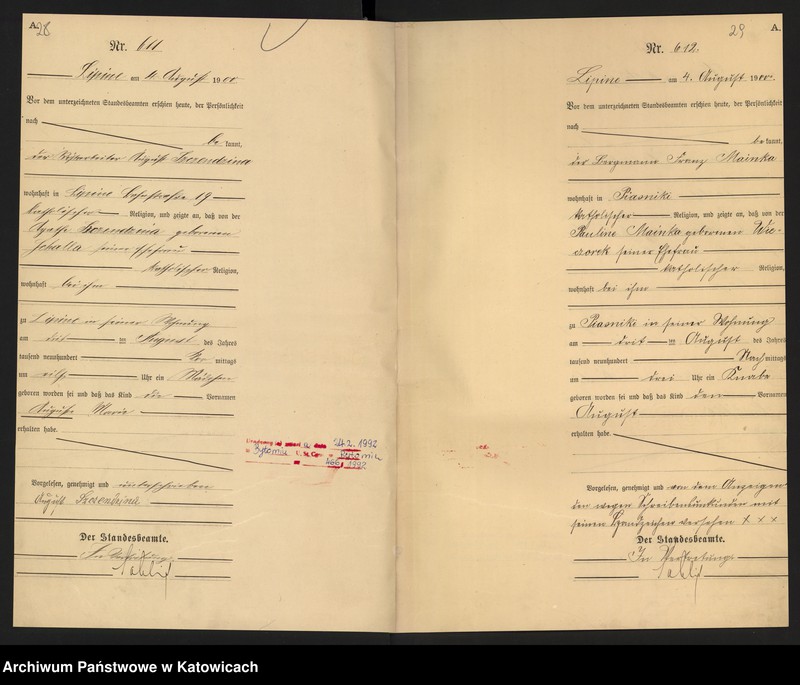 A.
28
Nr. 611
Lipine am 4. August 1900
Vor dem unterzeichneten Standesbeamten erschien heute, der Persönlichkeit
nach
be kannt,
der August Szezendzina
wohnhaft in Lipine 19
katholischer Religion, und zeigte an, daß von der
Szezendzina geborenen
seiner Ehefrau
katholischer Religion,
wohnhaft bei ihm
zu Lipine in seiner Wohnung
am drit ten August des Jahres
tausend neunhundert Vor mittags
um Uhr ein Mädchen
geboren worden sei und daß das Kind die Vornamen
Auguste Marie
erhalten habe.
Vorgelesen, genehmigt und unterschrieben
August Szezendzina
Der Standesbeamte.
In Vertretung
24.2.1992
Bytomiu U.S.C.
466 1992
29
A.
Nr. 612.
Lipine am 4. August 1900
Vor dem unterzeichneten Standesbeamten erschien heute, der Persönlichkeit
nach
be kannt,
der Bergmann Franz Mainka
wohnhaft in Piasniki
katholischer Religion, und zeigte an, daß von der
Pauline Mainka geborenen Wie-
czorek seiner Ehefrau
katholischer Religion,
wohnhaft bei ihm
zu Piasniki in seiner Wohnung
am drit ten August des Jahres
tausend neunhundert Nach mittags
um drei Uhr ein Knabe
geboren worden sei und daß das Kind den Vornamen
August
erhalten habe.
Vorgelesen, genehmigt und von dem Anzeigen-
den wegen Schreibensunkunden mit
seinen Handzeichen versehen + × ×
Der Standesbeamte.
In Vertretung
Archiwum Państwowe w Katowicach